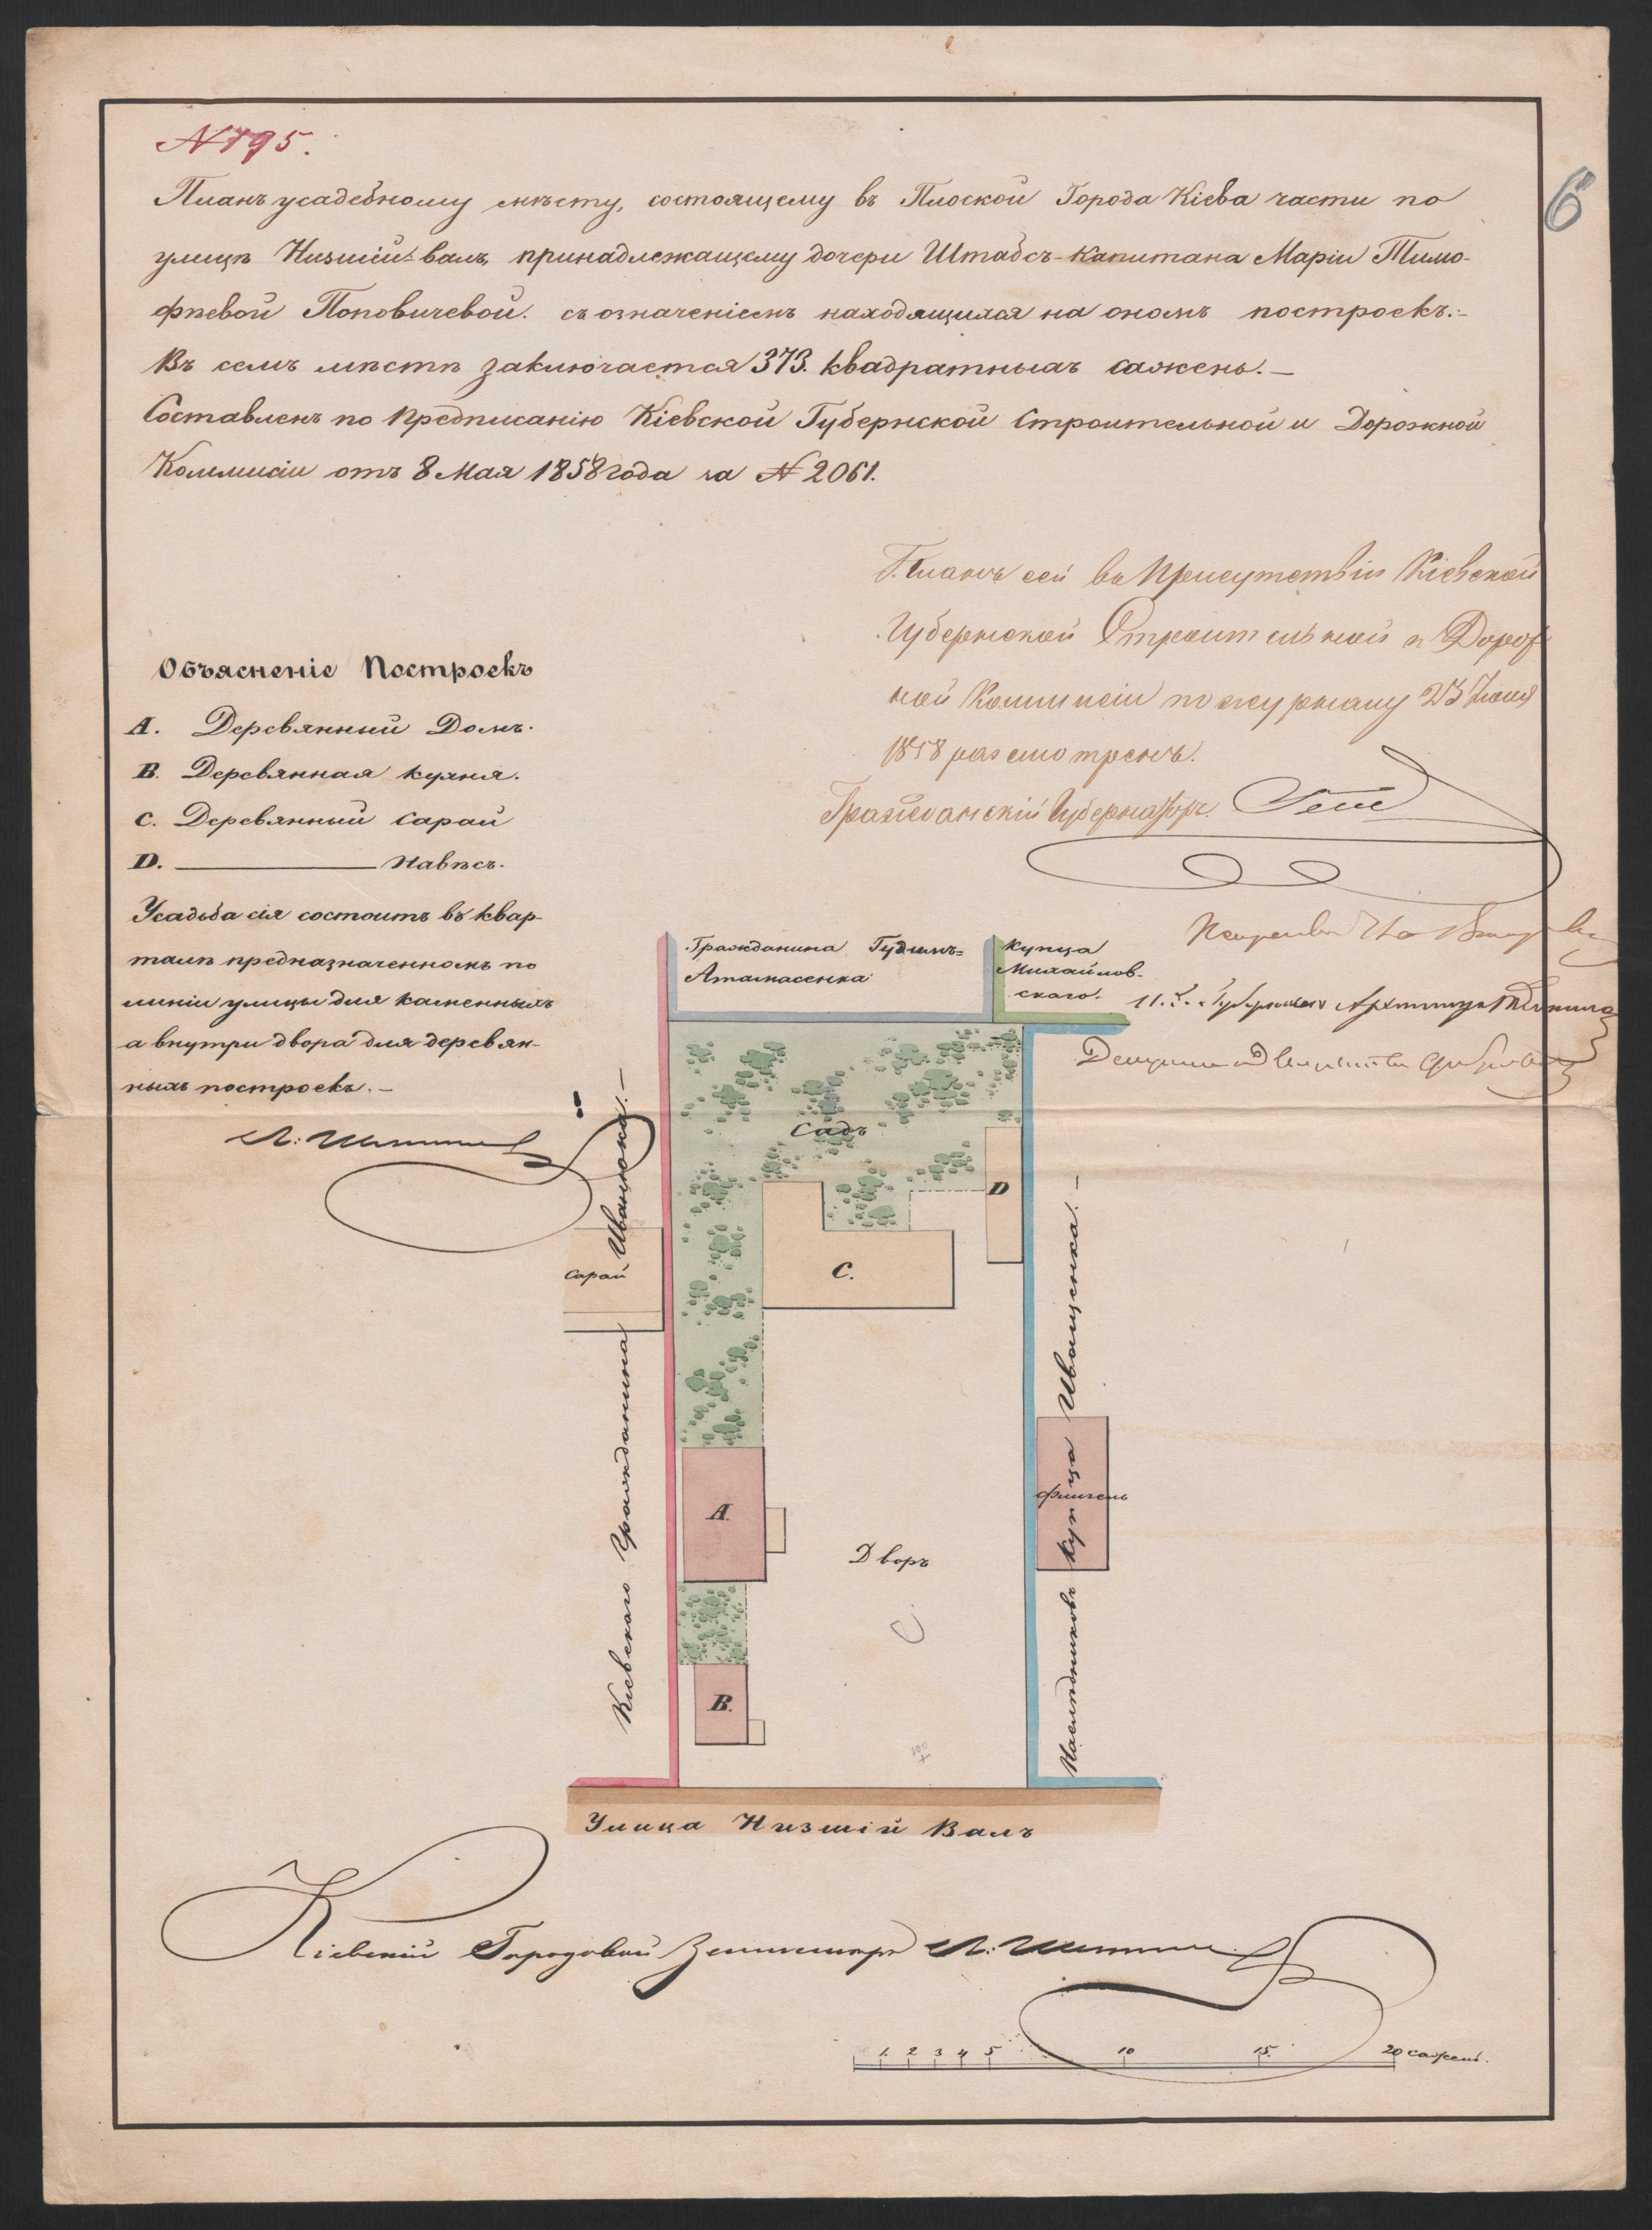 № 195.
6
Планъ усадебному мѣсту, состоящему въ Плоской Города Кіева части по
улицѣ Низшій-валъ, принадлежащему дочери Штабсъ-Капитана Маріи Тимо-
фѣевой Поповичевой. съ означеніемъ находящихся на ономъ построекъ.-
Въ семъ мѣстѣ заключается 373. квадратныхъ сажень.-
Составленъ по Предписанію Кіевской Губернской Строительной и Дорожной
Коммисіи отъ 8 Мая 1858 года за № 2061.
Планъ сей въ Присутствіи Кіевской
Губернской Строительной и Дорож
ной Коммисіи по журналу 23 Іюля
1858 разсмотренъ.
Гражданскій Губернаторъ
Объясненіе Построекъ
A. Деревянный Домъ.
B. Деревянная кухня.
C. Деревянный Сарай
D. ——— Навѣсъ.
Усадьба сія состоитъ въ квар-
талѣ предназначенномъ по
линіи улицы для каменныхъ
а внутри двора для деревян-
ныхъ построекъ.-
Гражданина Гудимъ=
Атамасенка
Купца
Михайлов-
скаго.
Губернскій Архитекторъ
Садъ
D
C.
Сарай
Кіевскаго Гражданина Иванюка.-
A.
Дворъ
B.
Флигель
Наслѣдниковъ купца Иващенка.-
Улица Низшій Валъ
Кіевскій Городовой Землемѣръ
1. 2 3 4 5 10 15. 20 сажень.